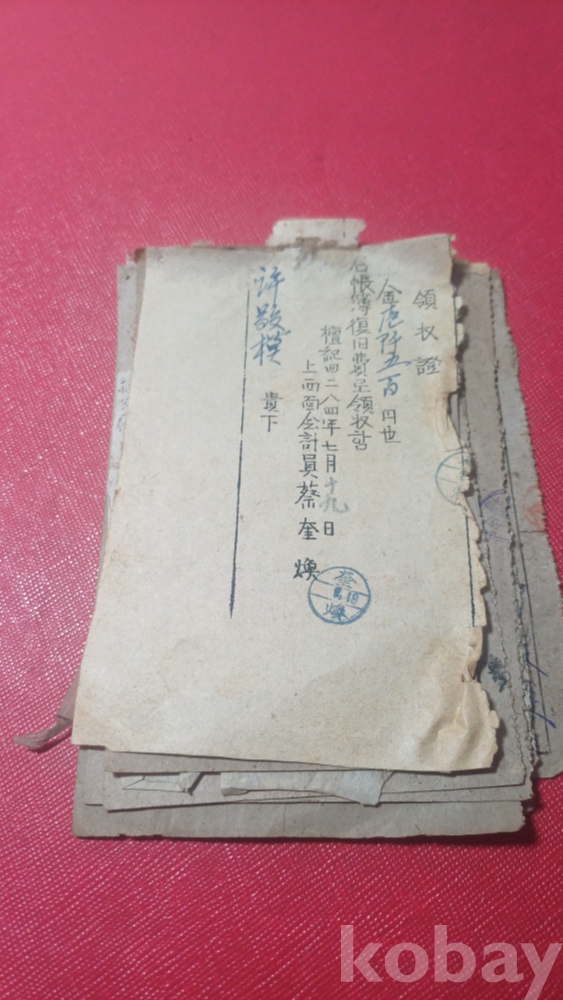 領収證
金壱阡五百円也
台帳簿復旧費로領収함
檀記四二八四年七月十九日
上西面会計員蔡奎煥
許敬模 貴下
kobay